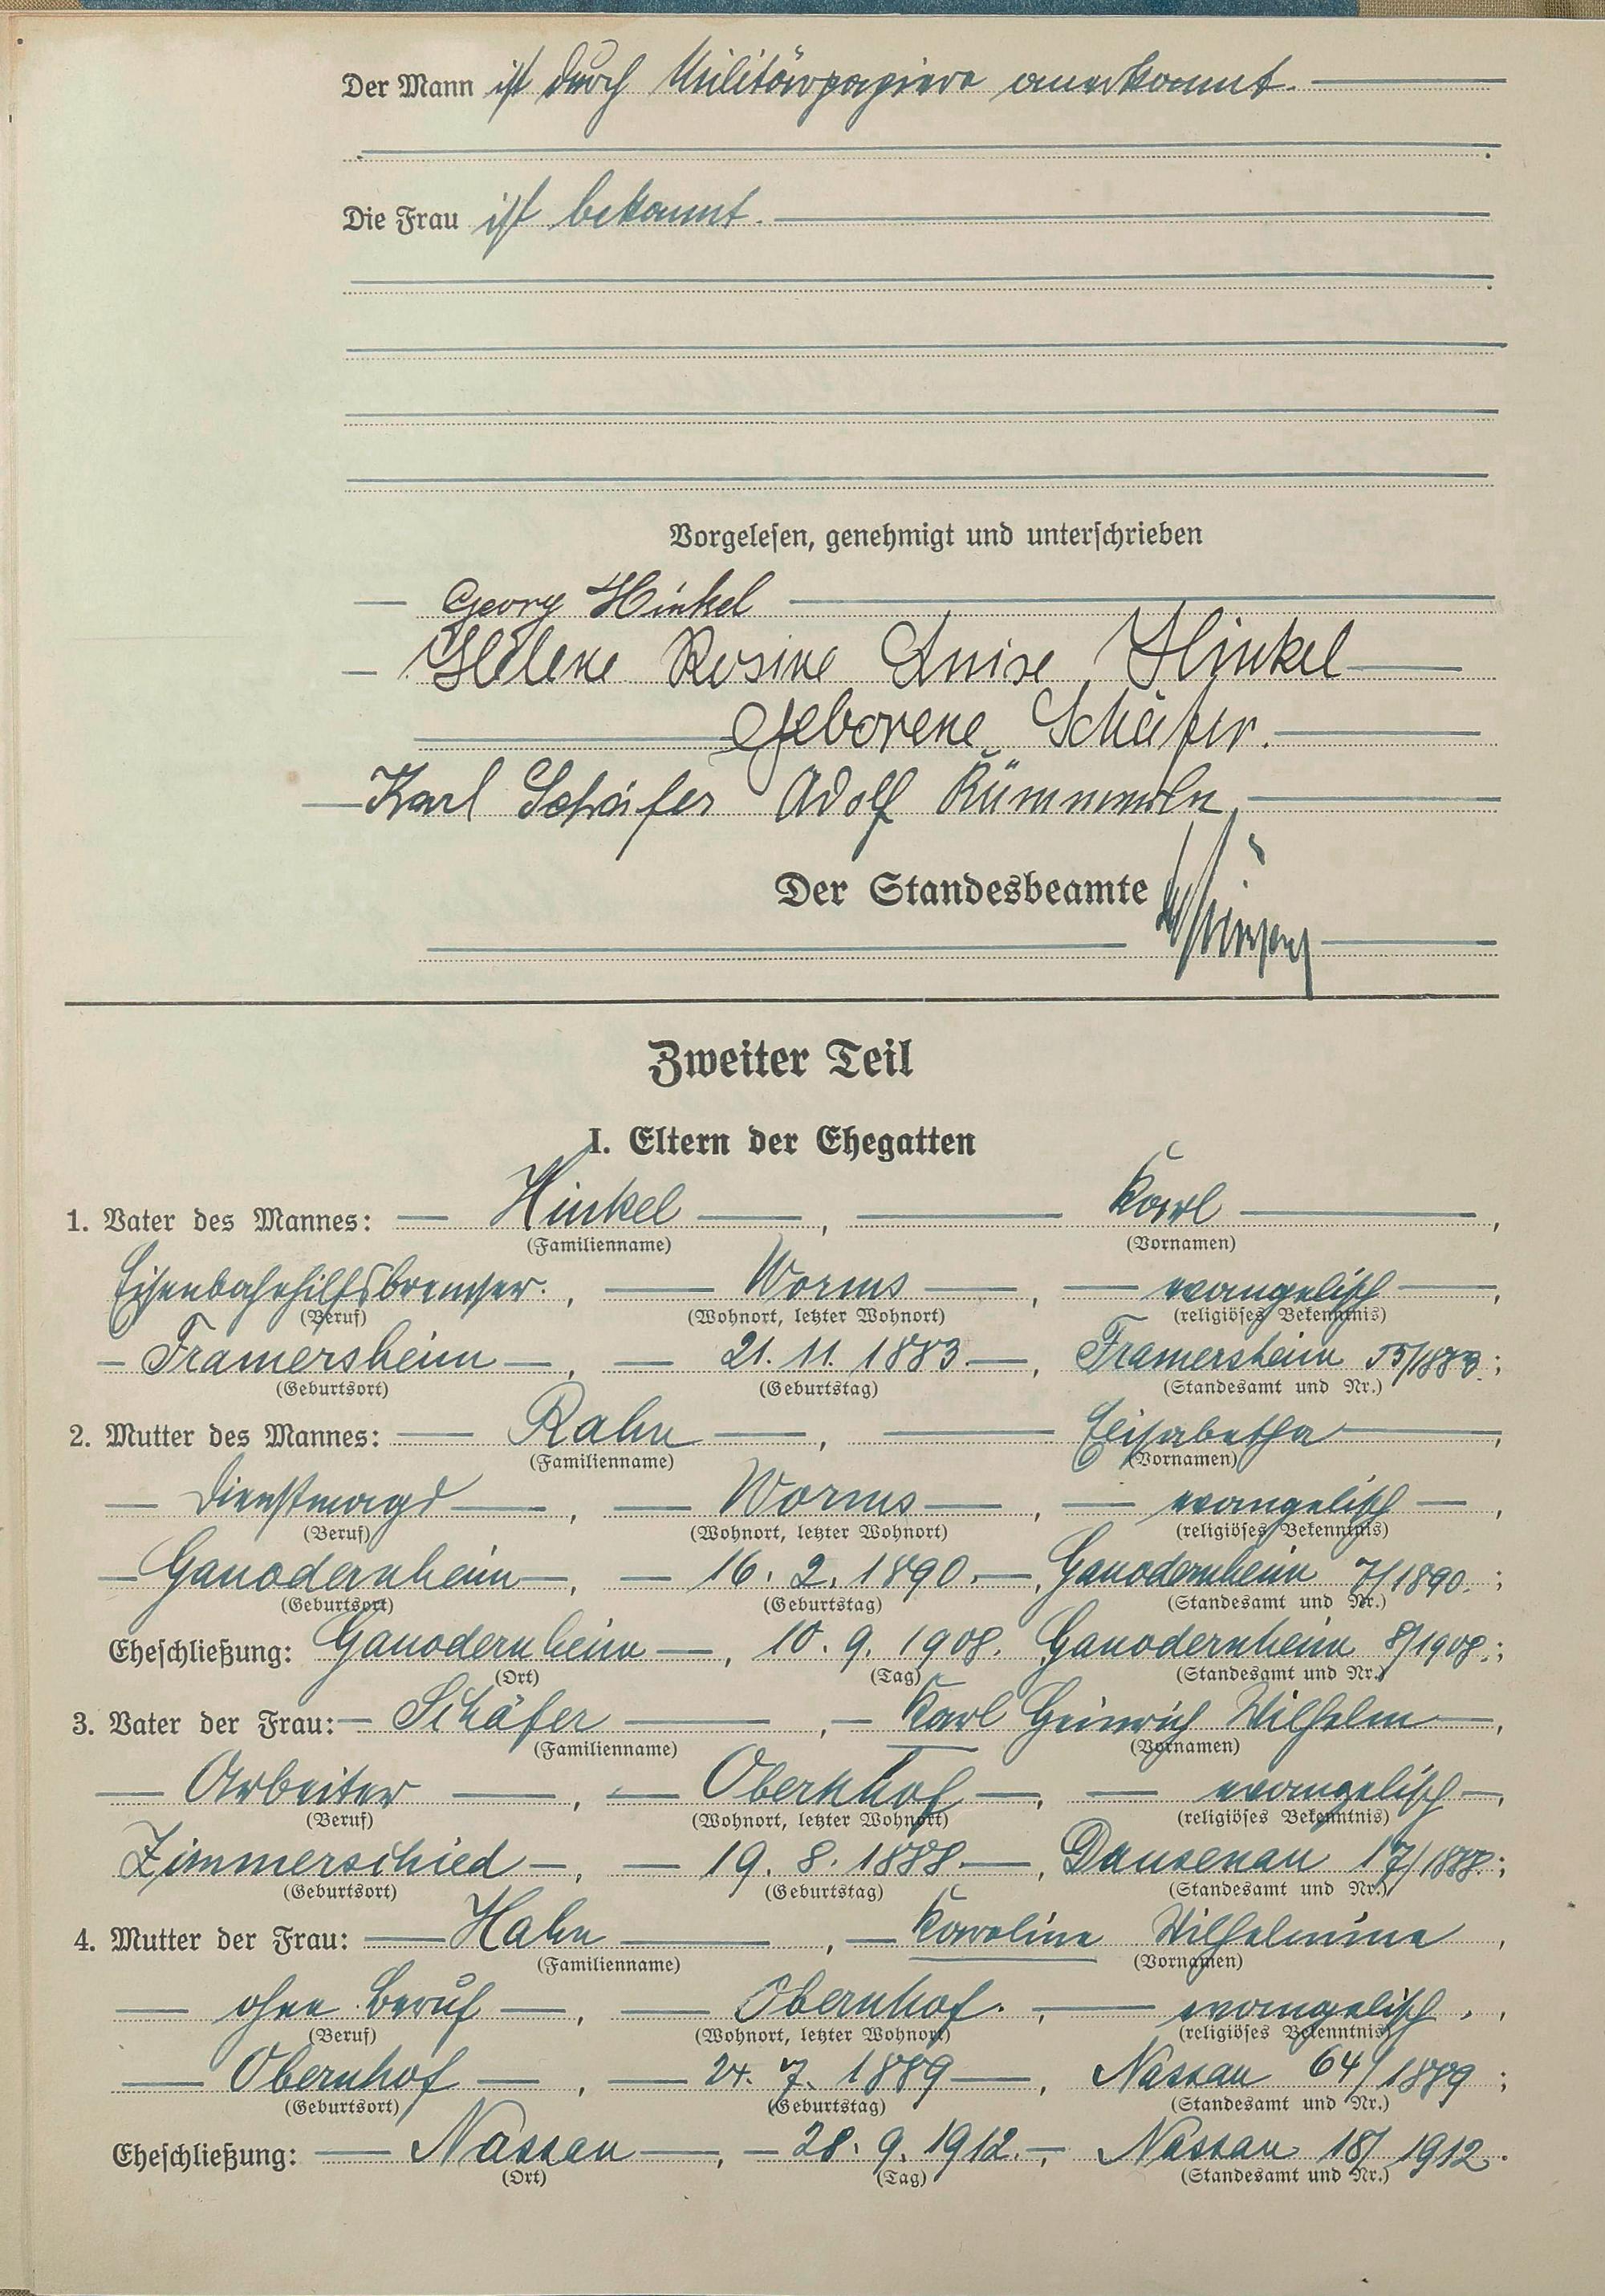 Der Mann ist durch Militärpapiere anerkannt.
Die Frau ist bekannt.
Vorgelesen, genehmigt und unterschrieben
Georg Hinkel
Helene Rosine Luise Hinkel
geborene Schäfer.
Karl Schäfer Adolf Kümmerle
Der Standesbeamte
Zweiter Teil
I. Eltern der Ehegatten
1. Vater des Mannes: Hinkel, Karl,
(Familienname) (Vornamen)
Eisenbahnhilfsbremser., Worms, evangelisch,
(Beruf) (Wohnort, letzter Wohnort) (religiöses Bekenntnis)
Framersheim, 21. 11. 1883, Framersheim 55/1883.;
(Geburtsort) (Geburtstag) (Standesamt und Nr.)
2. Mutter des Mannes: Rahn, Elisabetha,
(Familienname) (Vornamen)
Dienstmagd, Worms, evangelisch,
(Beruf) (Wohnort, letzter Wohnort) (religiöses Bekenntnis)
Gauodernheim, 16. 2. 1890., Gauodernheim 7/1890.;
(Geburtsort) (Geburtstag) (Standesamt und Nr.)
Eheschließung: Gauodernheim, 10. 9. 1908. Gauodernheim 8/1908.;
(Ort) (Tag) (Standesamt und Nr.)
3. Vater der Frau: Schäfer, Karl Heinrich Wilhelm,
(Familienname) (Vornamen)
Arbeiter, Obernhof, evangelisch,
(Beruf) (Wohnort, letzter Wohnort) (religiöses Bekenntnis)
Zimmerschied, 19. 8. 1888., Dausenau 17/1888.;
(Geburtsort) (Geburtstag) (Standesamt und Nr.)
4. Mutter der Frau: Hahn, Karoline Wilhelmine,
(Familienname) (Vornamen)
ohne Beruf, Obernhof., evangelisch.,
(Beruf) (Wohnort, letzter Wohnort) (religiöses Bekenntnis)
Obernhof, 24. 7. 1889, Nassau 64/1889;
(Geburtsort) (Geburtstag) (Standesamt und Nr.)
Eheschließung: Nassau, 28. 9. 1912., Nassau 18/1912.
(Ort) (Tag) (Standesamt und Nr.)